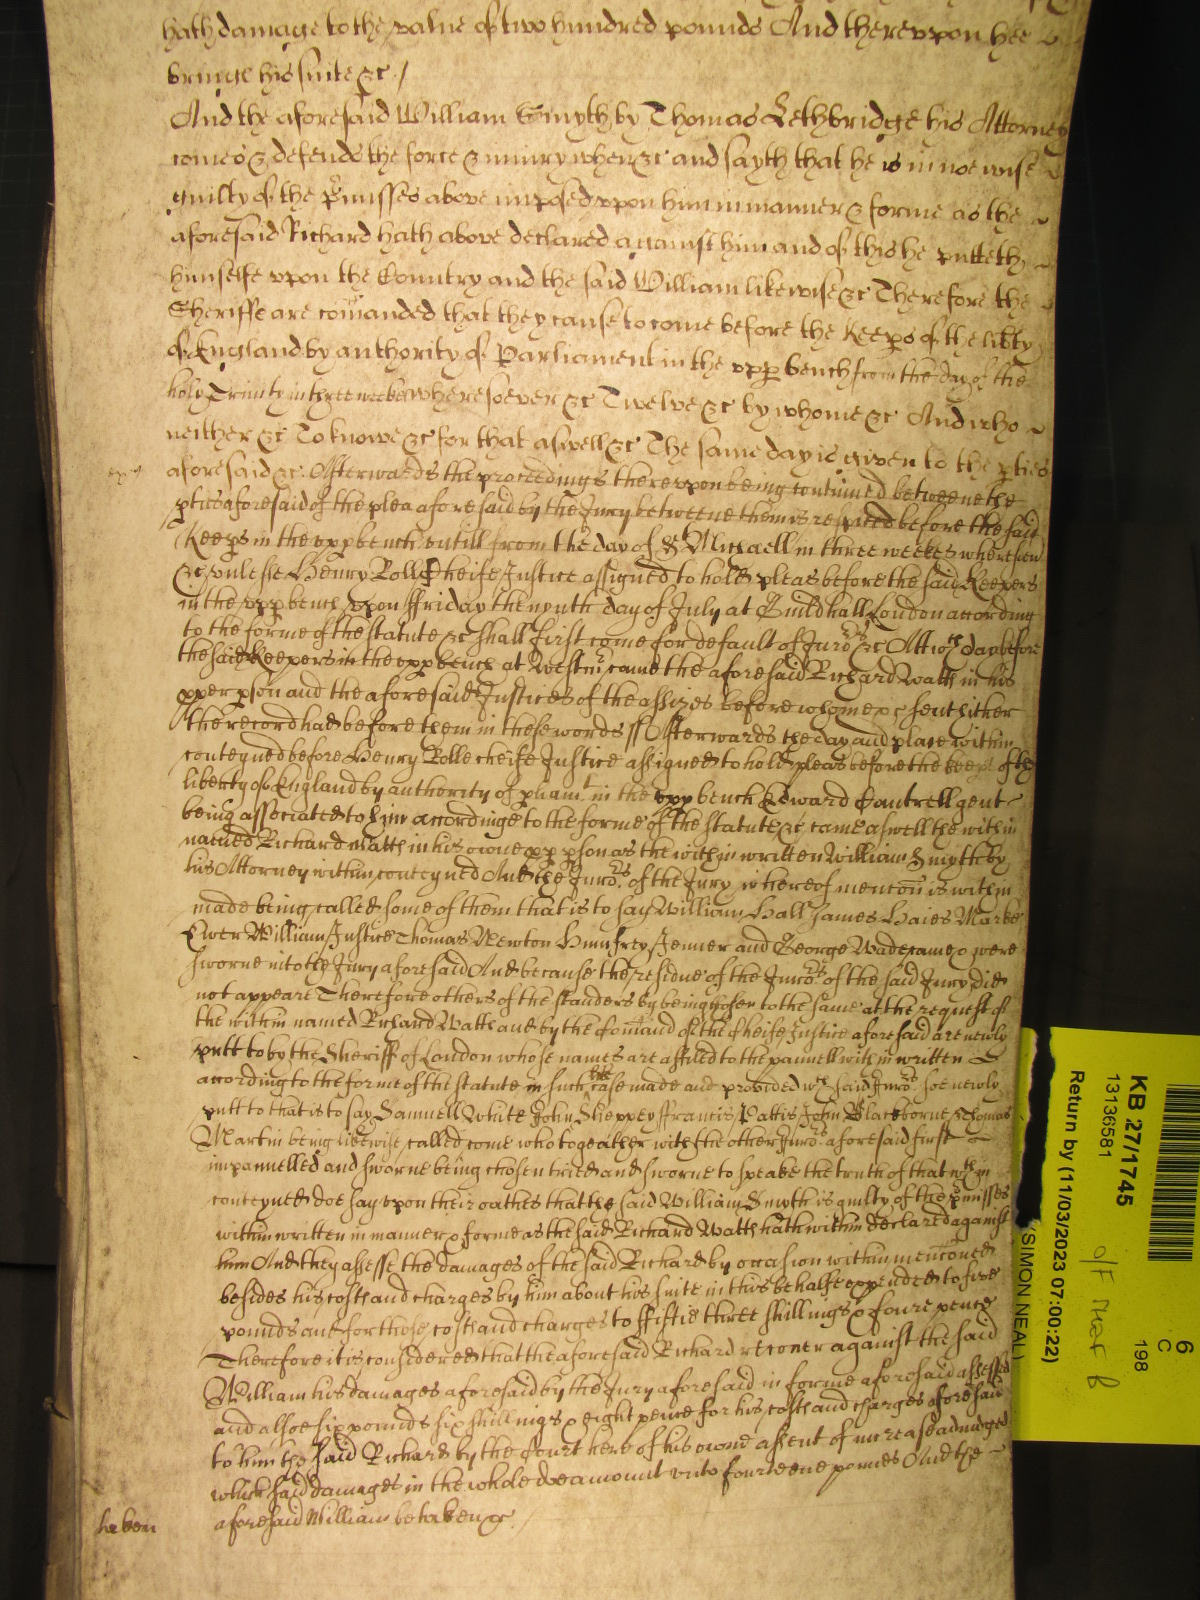 hath damage to the value of two hundred pounds And thereupon hee
bringe his suite &c /
And the aforesaid William Smyth by Thomas Lethbridge his Attorney
comes & defends the force & iniury when &c and sayth that he is in noe wise
guilty of the p'misses above imposed vpon him in manner & forme as the
aforesaid Richard hath above declared against him and of this he putteth
himselfe vpon the Country and the said William likewise &c Therefore the
Sheriffe are com̄anded that they cause to come before the Keeps of the lib'ty
of England by authority of Parliament in the vpp bench from the day of the
holy Trinity in three weekes wheresoever &c Twelve &c by whome &c And who
neither &c To knowe &c for that aswell &c The same day is given to the pties
aforesaid &c. Afterwards the proceedings therevpon being continued betweene the
pties aforesaid of the plea aforesaid by the Jury betweene them is respited before the said
Keeps in the vpp bench vntill from the day of St Michaell in three weekes wheresoev'
&c vnlesse Henry Rolle Cheife Justice assigned to hold pleas before the said Keepers
in the vpp bench vpon ffriday the nynth day of July at Guildhall London according
to the forme of the statute &c shall first come for default of Juro'rs &c Att wch day before
the said Keepers in the vpp bench at Westm'r came the aforesaid Richard Watts in his
pper pson and the aforesaid Justices of the assizes before whome &c sent hither
the record had before them in these words ss Afterwards the day and place within
conteyned before Henry Rolle cheife Justice assigned to hold pleas before the keeps of the
liberty of England by authority of pliam't in the vpp bench Edward Cantrell gent
being associated to him accordinge to the forme of the statute &c came aswell the within
named Richard Watts in his owne pp pson as the within written William Smyth by
his Attorney within conteyned And the Juro'rs of the Jury whereof menc̄on is within
made being called some of them that is to say William Hall James Haies Marke
Ewer William Justice Thomas Newton Humfrey Jenner and George Wade came & were
sworne into the Jury aforesaid And because the residue of the Juro'rs of the said Jury did
not appeare Therefore others of the standers by being chosen to the same at the request of
the within named Richard Watts and by the com̄and of the cheife Justice aforesaid are newly
putt to by the Sheriff of London whose names are affiled to the pannell within written
according to the forme of the statute in such like case made and provided wch said Juro'rs soe newly
putt to that is to say Samuell White John Sheppey Francis Pattis John Blackborne & Thomas
Martin being likewise called come who togeather with the other Juro'rs aforesaid first
impannelled and sworne being chosen tried and sworne to speake the truth of that wthin
conteyned doe say vpon their oathes that the said William Smyth is guilty of the p'misses
within written in manner & forme as the said Richard Watts hath within declared against
him And they assesse the damages of the said Richard by occasion within menc̄oned
besides his costs and charges by him about his suite in this behalfe expended to five
pounds and for those costs and charges to ffiftie three shillings & foure pence
Therefore it is considered that the aforesaid Richard recover against the said
William his damages aforesaid by the Jury aforesaid in forme aforesaid assessed
and alsoe six pounds six shillings & eight pence for his costs and charges aforesaid
to him the said Richard by the Court here of his owne assent of increase adiudged
which said damages in the whole doe amount vnto fourteene pounds And the
taken aforesaid William be taken &c. /
KB 27/1745
13136581
Return by (11/03/2023 07:00:22)
(SIMON NEAL)
6
C
198